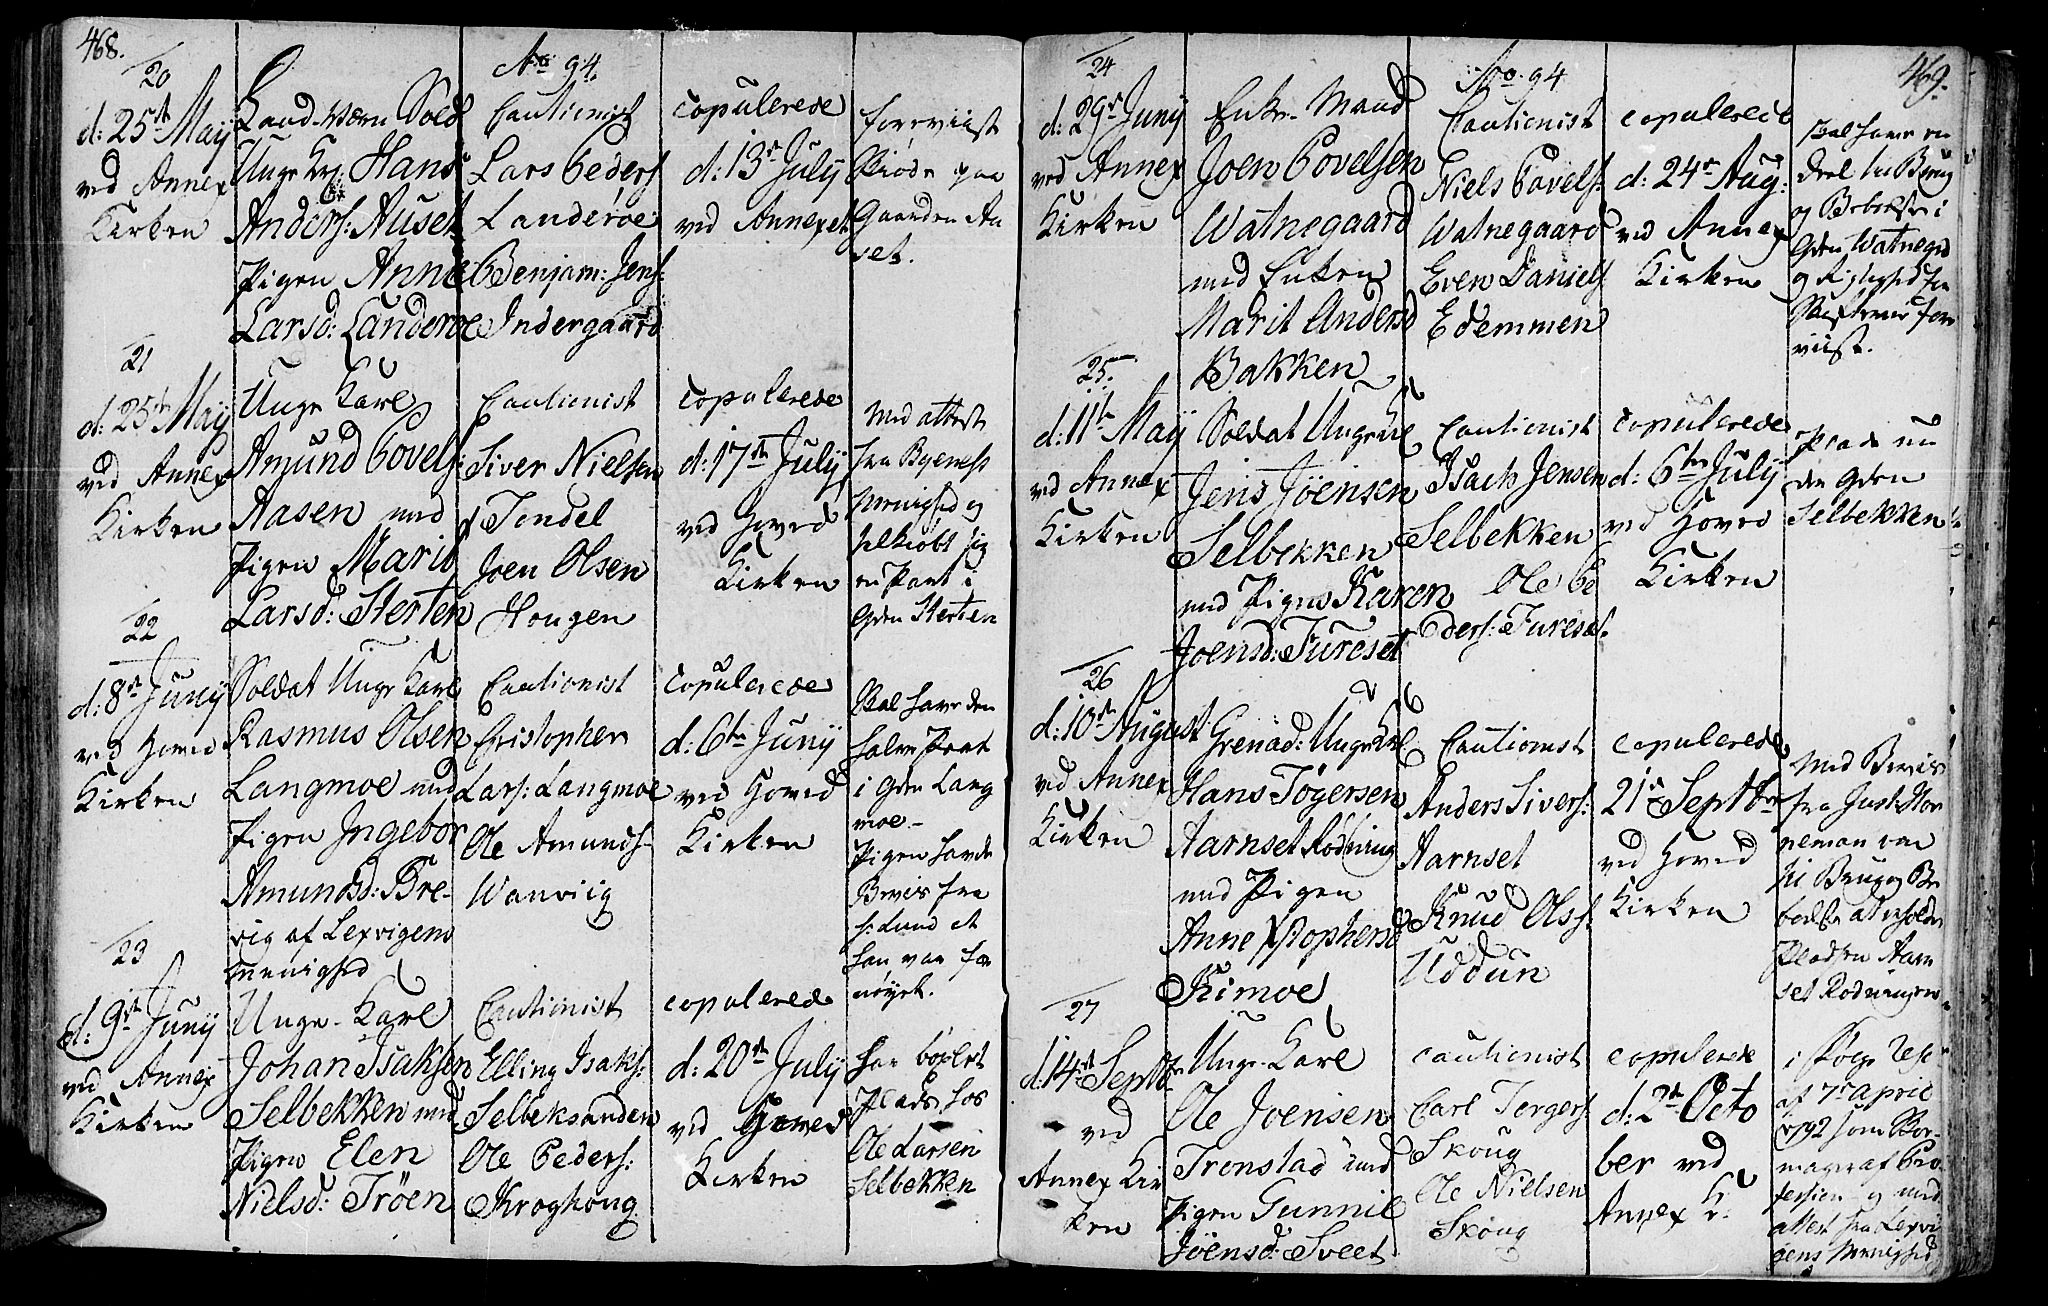 468.
Ao 94.
20
d: 25de Maÿ
ved Annex
Kirken
Land-Værn Sold
Unge Krl Hans
Anders: Auset
Pigen Anne
Larsd: Landeröe
Cautionist
Lars Peders
Landeröe
Benjam: Jens:
Indergaard
copulerede
d: 13de Julÿ
ved Annexet
foreviist
Skiöde paa
Gaarden Au
set.
21
d: 25de Maÿ
ved Annex
Kirken
Unge Karl
Amund Povels:
Aasen med
Pigen Marit
Larsd: Sterten
Cautionist
Siver Nielsen
Tendel
Joen Olsen
Hougen
copulerede
d: 17de Julÿ
ved Hoved
Kirken
Med attest
fra Byeness
Menighed og
selkiöbt sig
en Part i
Gden Sterten
22
d: 8de Junÿ
ved Hoved
Kirken
Soldat Unge Karl
Rasmus Olsen
Langmoe med
Pigen Ingebor
Amundsd: Bre-
vig af Lexvigens
menighed
Cautionist
Christopher
Lars: Langmoe
Ole Amunds-
Wanviig
copulerede
d: 6te Junÿ
ved Hoved
Kirken
Skal have den
halve Part
i Gden Lang
moe-
Pigen havde
Bevis fra
H: Lund at
han var for
nöyet.
23
d: 9de Junÿ
ved Annex
Kirken
Unge-Karl
Johan Isaksen
Selbekken med
Pigen Elen
Nielsd: Tröen
Cautionist
Elling Isaks:
Selbeksanden
Ole Peders:
Kroghoug
copulerede
d: 20de Julÿ
ved Hoved
Kirken
har böxlet
Plads hos
Ole Larsen
Selbekken
469.
Ao. 94
24
d: 29de Junÿ
ved Annex
Kirken
Enke-Mand
Joen Povelsen
Watnegaard
med Enken
Marit Andersd
Bakken
Cautionist
Niels Povels:
Watnegaard
Even Daniels
Edemmen
copulerede
d: 24de Aug:
ved Annex
Kirken
Skal have en
deel til Brug
og Beboelse i
Gden Watnegrd
og Rigtighed for
Skiftevæs fore
viist.
25.
d: 11te Maÿ
ved Annex
Kirken
Soldat Unge Krl
Jens Jöensen
Selbekken
med Pigen Karen
Joensd: Füreset
Cautionist
Isach Jensen
Selbekken
Ole Pe
ders: Fureset.
copulerede
d: 6te Julÿ
ved Hoved
Kirken
Plads un
der Gden
Selbekken
26
d: 10de August
ved Annex
Kirken
Grenad: Unge Krl
Hans Tögersen
Aarnset Rödning
med Pigen
Anne Xstophersd
Kimoe
Cautionist
Anders Sivers:
Aarnset
Knud Olss:
Uddun
copulerede
21de Septbr
ved Hoved
Kirken
Med Bevis
fra Just: Hor
neman om
til Brug og Be
boelse at erholde
Pladsen Aarn
set Rödningen
27
d: 14de Septbr
ved
Annex Kir
ken
Unge-Karl
Ole Joensen
Tronstad med
Pigen Gunnil
Jöensd: Sveet
cautionist
Carl Torgers:
Skoug
Ole Nielsen
Skoug
copulerede
d: 2de Octo
ber ved
Annex K:
i Fölge Res:
af 7de April
1792 som Bor-
mager af Pro
fession og med
attest fra Lexvi
gens Menighed